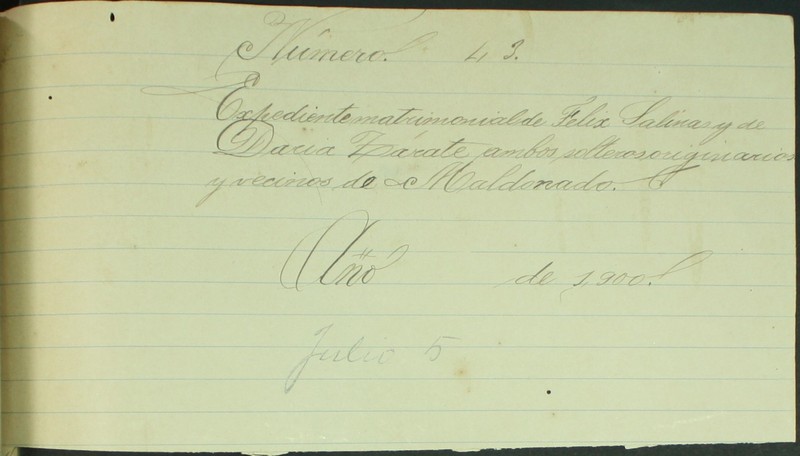 Número. 43.
Expediente matrimonial de Felix Salinas y de
Daria Zárate, ambos solteros originarios
y vecinos de Maldonado.
Año de 1,900.
Julio 5